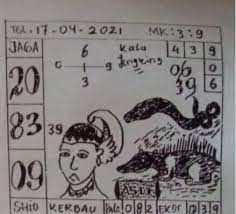 TGL. 17-04-2021 MK: 3:9
JAGA 6 Kala 4 3 9
0 1 9 06 0
20 3 39 6
83 39
09 ASLI
SHIO KERBAU 0 8 2 EKOR 0 3 9